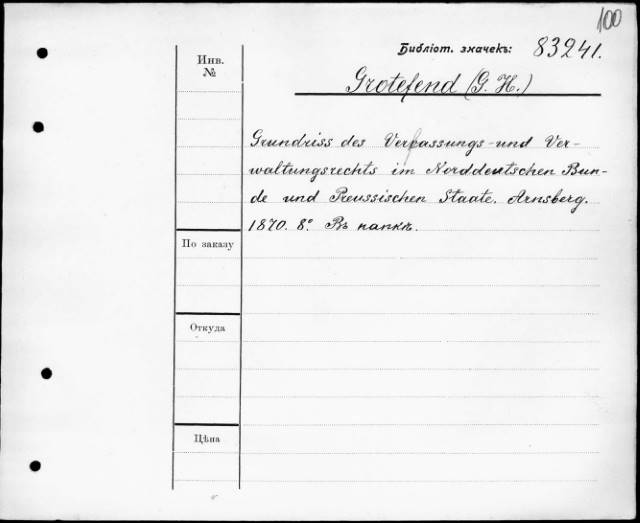 100
Библіот. значекъ: 83241.
Инв.
№
Grotefend (G. H.)
Grundriss des Verfassungs- und Ver-
waltungsrechts im Norddeutschen Bun-
de und Preussischen Staate. Arnsberg.
1870. 8° Въ папкѣ.
По заказу
Откуда
Цѣна